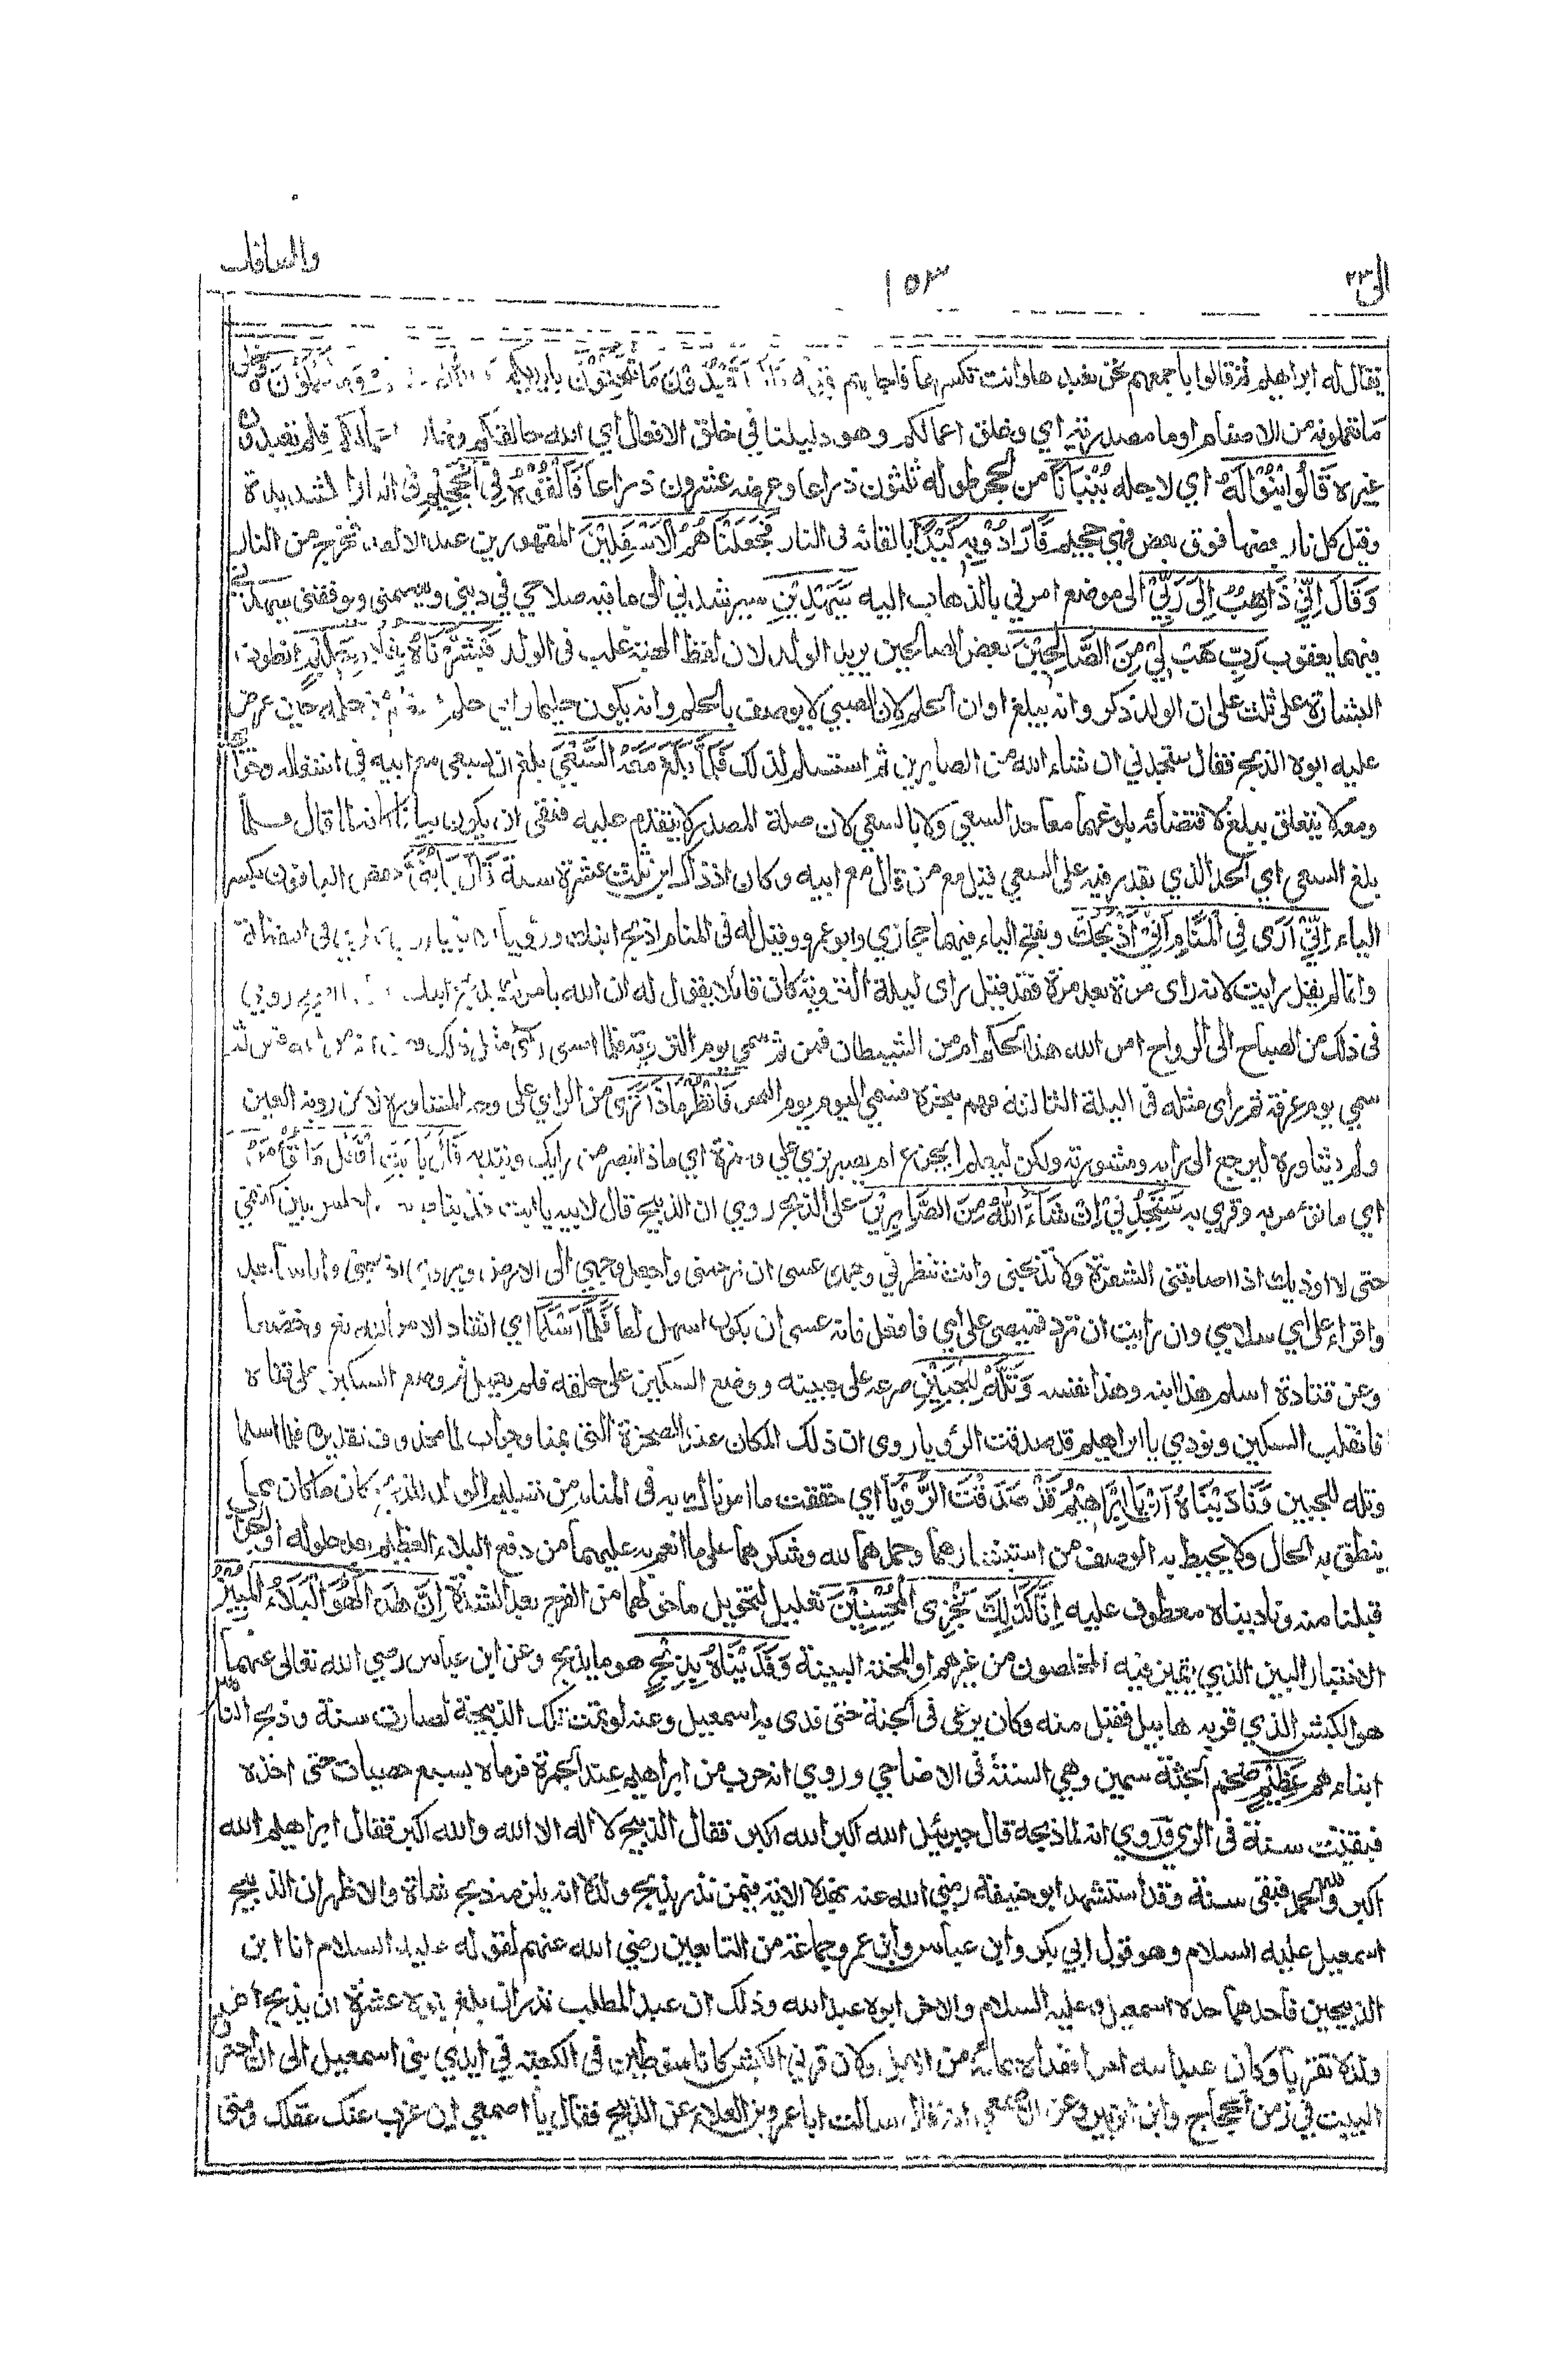 والصافات
١٥٣
٢٣
فقال له ابراهيم ثم قالوا باجمعهم نحن نعبدها وانت تكسرها فاجابهم بقوله قَالَ اَتَعْبُدُوْنَ مَا تَنْحِتُوْنَ بايديكم
مَا تعملونه من الاصنام او ما مصدرية اي وخلق اعمالكم وهو دليلنا في خلق الافعال اي الله خالقكم وخالق اعمالكم فلم تعبدون
غيره قَالُوا ابْنُوْا لَهٗ اي لاجله بُنْيَانًا من الحجر طوله ثلثون ذراعا وعرضه عشرون ذراعا فَاَلْقُوْهُ فِي الْجَحِيْمِ فى النار الشديدة
وقيل كل نار بعضها فوق بعض فهي جحيم فَاَرَادُوْا بِهٖ كَيْدًا بالقائه فى النار فَجَعَلْنَاهُمُ الْاَسْفَلِيْنَ المقهورين عند الالقاء فخرج من النار
وَقَالَ اِنِّيْ ذَاهِبٌ اِلٰى رَبِّيْ الى موضع امرني بالذهاب اليه سَيَهْدِيْنِ سيرشدني الى ما فيه صلاحي في ديني ويعصمنى ويوفقنى سيهديني
فيهما يعقوب رَبِّ هَبْ لِيْ مِنَ الصَّالِحِيْنَ بعض الصالحين يريد الولد لان لفظ الهبة غلب فى الولد فَبَشَّرْنَاهُ بِغُلَامٍ حَلِيْمٍ انطوت
البشارة على ثلث على ان الولد ذكر وانه يبلغ اوان الحلم لان الصبي لا يوصف بالحلم وانه يكون حليما واي حلم اعظم من حلمه حين عرض
عليه ابوه الذبح فقال ستجدني ان شاء الله من الصابرين ثم استسلم لذلك فَلَمَّا بَلَغَ مَعَهُ السَّعْيَ بلغ ان يسعى مع ابيه في اشغاله
ومعه لا يتعلق ببلغ لاقتضائه بلوغهما معا حد السعي ولا بالسعي لان صلة المصدر لا يتقدم عليه فبقى ان يكون بيانا كانه لما قال فلما
بلغ السعى اي الحد الذي يقدر فيه على السعي قيل مع من قال مع ابيه وكان اذ ذاك ابن ثلث عشرة سنة قَالَ يَا بُنَيَّ حفص الباقون بكسر
الياء اِنِّيْ اَرٰى فِى الْمَنَامِ اَنِّيْ اَذْبَحُكَ وبفتح الياء فيهما حجازي وابو عمرو وقيل له فى المنام اذبح ابنك ورؤيا
وانما لم يقل رايت لانه راى مرة بعد مرة فقد قيل راى ليلة التروية كان قائلا يقول له ان الله يامرك بذبح ابنك
فى ذلك من الصباح الى الرواح امن الله هذا الحلم ام من الشيطان فمن ثم سمي يوم التروية فلما امسى راى مثل ذلك
سمي يوم عرفة ثم راى مثله فى الليلة الثالثة فهم بنحره فسمي اليوم يوم النحر فَانْظُرْ مَاذَا تَرٰى من الراي على وجه المشاورة لا من روية العين
ولم يشاوره ليرجع الى رايه ومشورته ولكن ليعلم ايجزع ام يصبر ترى علي وحمزة اي ماذا تبصر من رايك وتبديه قَالَ يَا اَبَتِ افْعَلْ مَا تُؤْمَرُ
اي ما تؤمر به وقرئ به سَتَجِدُنِيْ اِنْ شَاءَ اللّٰهُ مِنَ الصَّابِرِيْنَ على الذبح روي ان الذبيح قال لابيه يا ابت
حتى لا اوذيك اذا اصابتنى الشفرة ولا تذبحنى وانت تنظر في وجهى عسى ان ترحمنى واجعل وجهي الى الارض
واقراء على امي سلامي وان رايت ان ترد قميصى على امي فافعل فانه عسى ان يكون اسهل لها فَلَمَّا اَسْلَمَا اي انقادا لامر الله تع وخضعا
وعن قتادة اسلم هذا ابنه وهذا نفسه وَتَلَّهٗ لِلْجَبِيْنِ صرعه على جبينه ووضع السكين على حلقه فلم يعمل ثم وضع السكين على قفاه
فانقلب السكين ونودي يا ابراهيم قد صدقت الرؤيا روى ان ذلك المكان عند الصخرة التى بمنا وجواب لما محذوف تقديره فلما اسلما
وتله للجبين وَنَادَيْنَاهُ اَنْ يَا اِبْرَاهِيْمُ قَدْ صَدَّقْتَ الرُّؤْيَا اي حققت ما امرناك به فى المنام من تسليم الولد للذبح كان ما كان مما
ينطق به الحال ولا يحيط به الوصف من استبشارهما وحمدهما لله وشكرهما على ما انعم به عليهما من دفع البلاء العظيم بعد حلوله او الجواب
قبلنا منه وناديناه معطوف عليه اِنَّا كَذٰلِكَ نَجْزِى الْمُحْسِنِيْنَ تعليل لتخويل ما خولهما من الفرج بعد الشدة اِنَّ هٰذَا لَهُوَ الْبَلَاءُ الْمُبِيْنُ
الاختبار البين الذي يتميز فيه المخلصون من غيرهم او المحنة البينة وَفَدَيْنَاهُ بِذِبْحٍ هو ما يذبح وعن ابن عباس رضي الله تعالى عنهما
هو الكبش الذي قربه هابيل فقبل منه وكان يرعى فى الجنة حتى فدى به اسمعيل وعنه لو تمت تلك الذبيحة لصارت سنة وذبح الناس
ابناءهم عَظِيْمٍ ضخم الجثة سمين وهي السنة فى الاضاحي وروي انه هرب من ابراهيم عند الجمرة فرماه بسبع حصيات حتى اخذه
فبقيت سنة فى الرمي وروي انه لما ذبحه قال جبرئيل الله اكبر الله اكبر فقال الذبيح لا اله الا الله والله اكبر فقال ابراهيم الله
اكبر ولله الحمد فبقى سنة وقد استشهد ابو حنيفة رضي الله عنه بهذه الاية فيمن نذر بذبح ولده انه يلزمه ذبح شاة والاظهر ان الذبيح
اسمعيل عليه السلام وهو قول ابي بكر وابن عباس وابن عمر وجماعة من التابعين رضي الله عنهم لقوله عليه السلام انا ابن
الذبيحين فاحدهما جده اسمعيل عليه السلام والاخر ابوه عبد الله وذلك ان عبد المطلب نذر ان بلغ بنوه عشرة ان يذبح اخر
ولده تقربا وكان عبد الله اخرا ففداه بمائة من الابل ولان قرني الكبش كانا منوطين فى الكعبة في ايدي بنى اسمعيل الى ان احترق
البيت في زمن الحجاج وابن الزبير وعن الاصمعي انه قال سالت ابا عمرو بن العلاء عن الذبيح فقال يا اصمعي اين عزب عنك عقلك ومتى